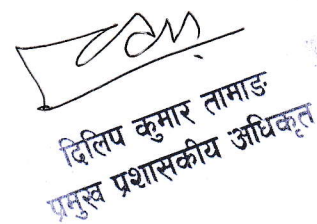 दिलिप कुमार तामाङ
प्रमुख प्रशासकीय अधिकृत